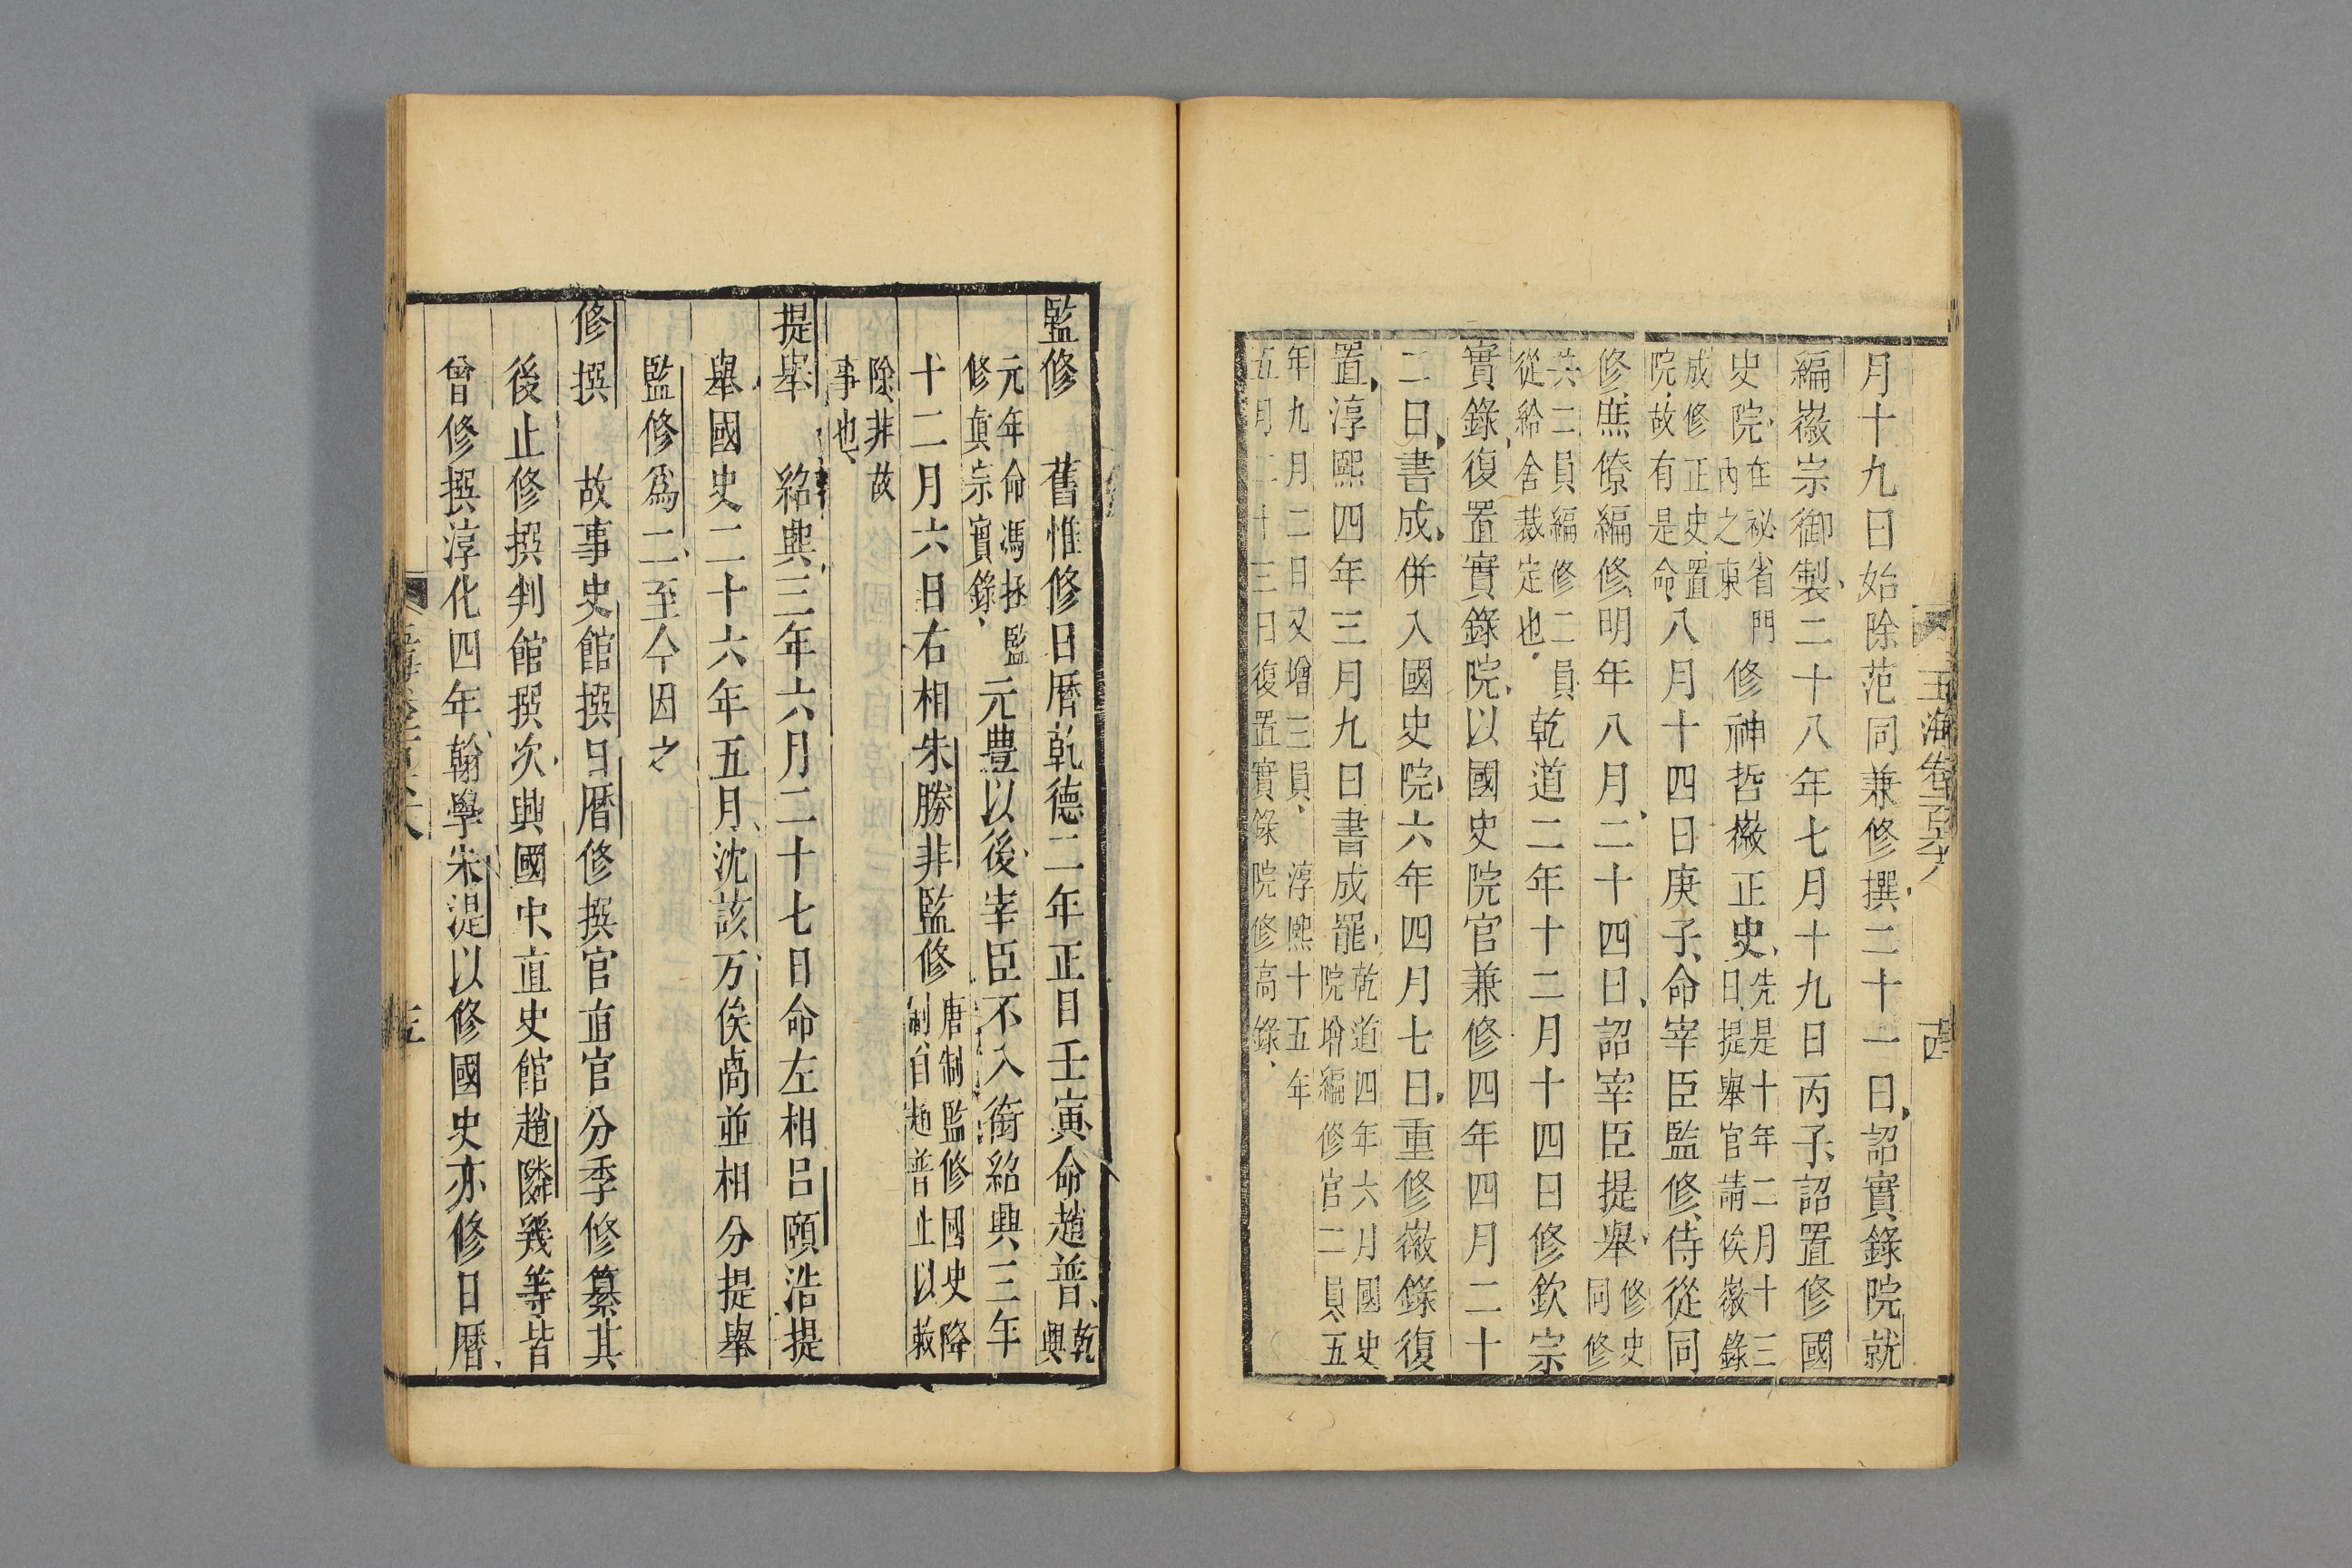 玉海卷一百六十八
十四
月十九日始除范同兼修撰二十一日詔實錄院就
編徽宗御製二十八年七月十九日丙子詔置修國
史院在祕省門內之東修神哲徽正史先是十年二月十三日提舉官請俟徽錄
成修正史置院故有是命八月十四日庚子命宰臣監修侍從同
修庶僚編修明年八月二十四日詔宰臣提舉修史同修
共二員編修二員從給舍裁定也乾道二年十二月十四日修欽宗
實錄復置實錄院以國史院官兼修四年四月二十
二日書成併入國史院六年四月七日重修徽錄復
置淳熙四年三月九日書成罷乾道四年六月國史院增編修官二員五
年九月二日又增三員淳熙十五年五月二十三日復置實錄院修高錄
監修　舊惟修日曆乾德二年正月壬寅命趙普乾興
元年命馮拯監修真宗實錄元豊以後宰臣不入銜紹興三年
十二月六日右相朱勝非監修唐制監修國史降制自趙普止以敕
除非故事也
提舉　紹興三年六月二十七日命左相呂頤浩提
舉國史二十六年五月沈該万俟卨並相分提舉
監修爲二至今因之
修撰　故事史館撰日曆修撰官直官分季修纂其
後止修撰判館撰次興國中直史館趙隣幾等皆
曾修撰淳化四年翰學宋湜以修國史亦修日曆